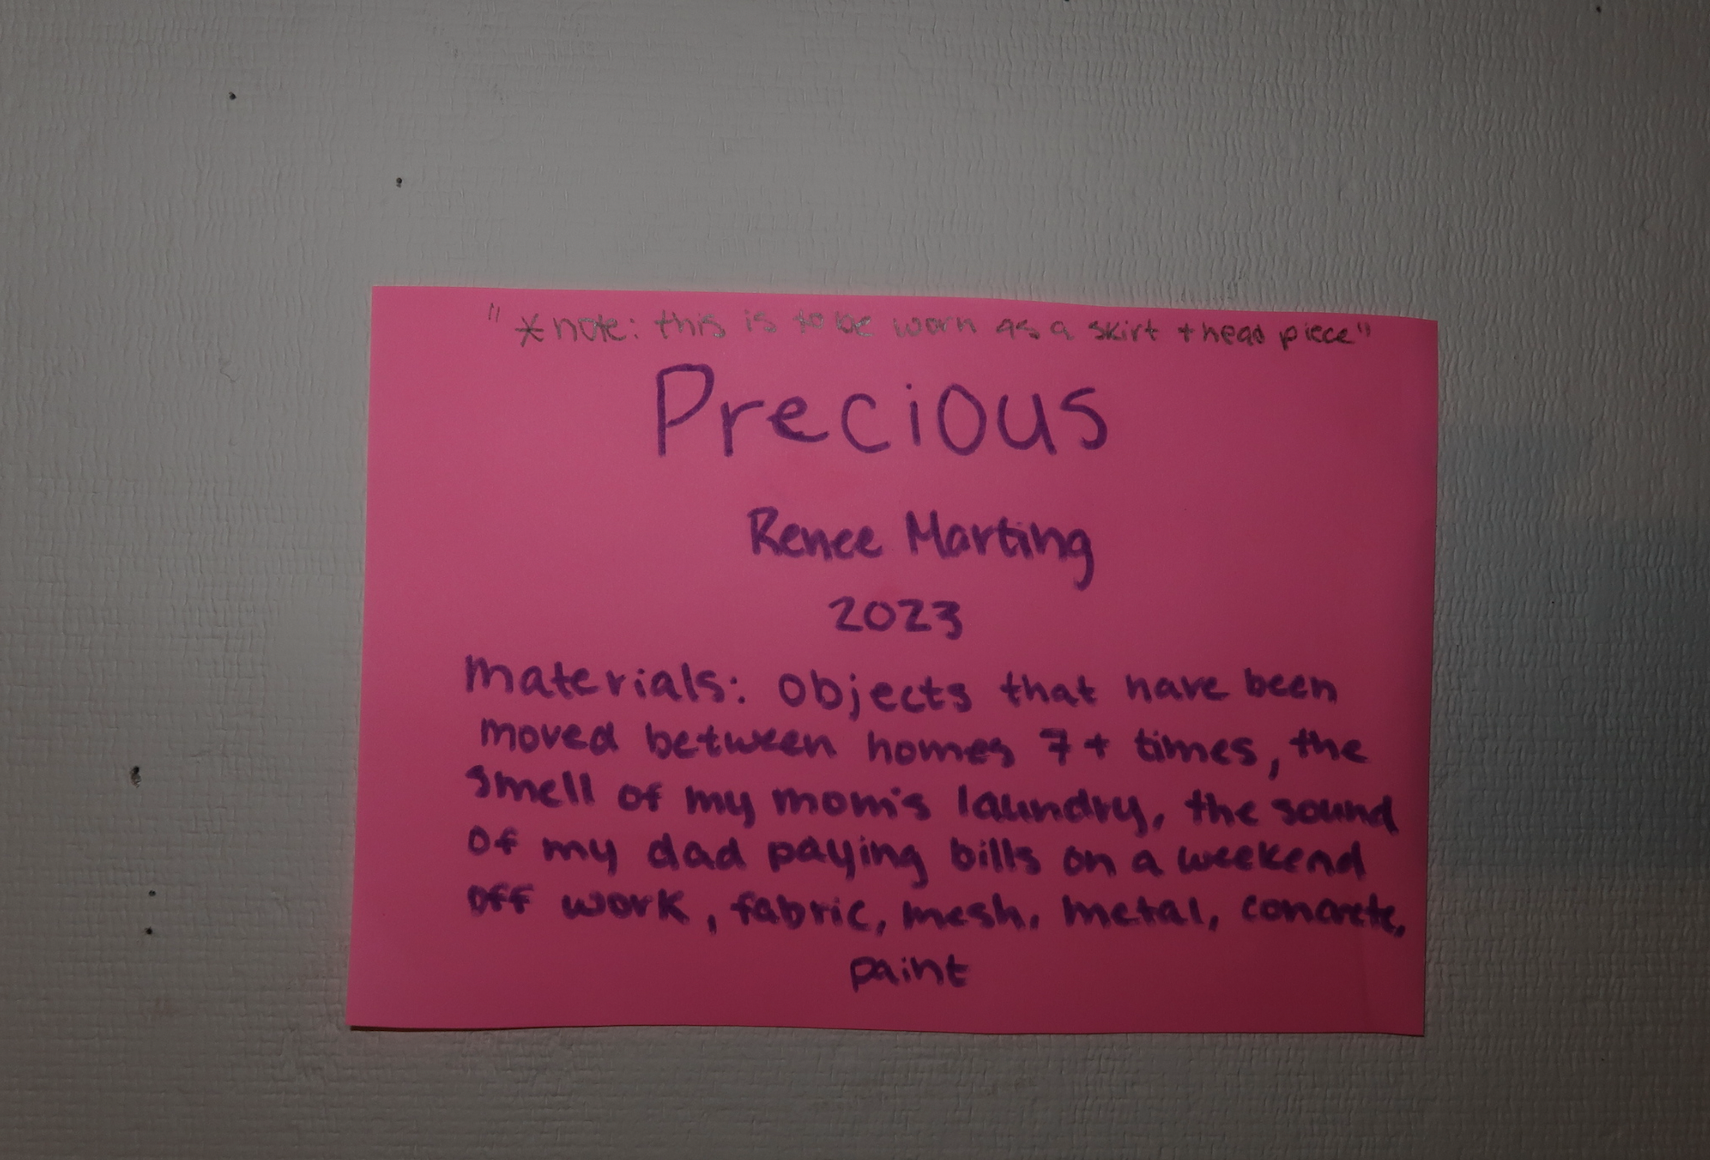 "*note: this is to be worn as a skirt + head piece"
Precious
Renee Marting
2023
Materials: Objects that have been
moved between homes 7+ times, the
smell of my mom's laundry, the sound
of my dad paying bills on a weekend
off work, fabric, mesh, metal, concrete,
paint